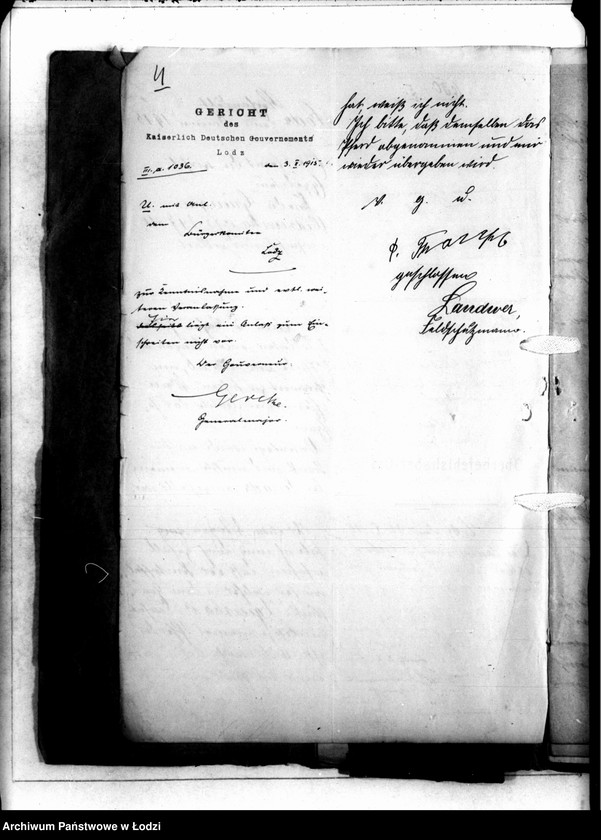 4
GERICHT
des
Kaiserlich Deutschen Gouvernements
Lodz
den 3. V. 1915.
U. mit Anl.
dem
Bürgerkomitee
Lodz
zur Kenntnisnahme und evtl. wei-
teren Veranlassung.
liegt ein Anlaß zum Ein-
schreiten nicht vor
Der Gouverneur.
Gercke.
Generalmajor.
hat, weiß ich nicht.
Ich bitte, daß demselben das
Pferd abgenommen und mir
wieder übergeben wird.
v. g. u.
geschlossen
Landwer,
Feldschutzmann.
Archiwum Państwowe w Łodzi